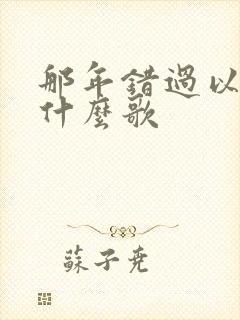 那年錯過以
什麼歌
蘇子堯